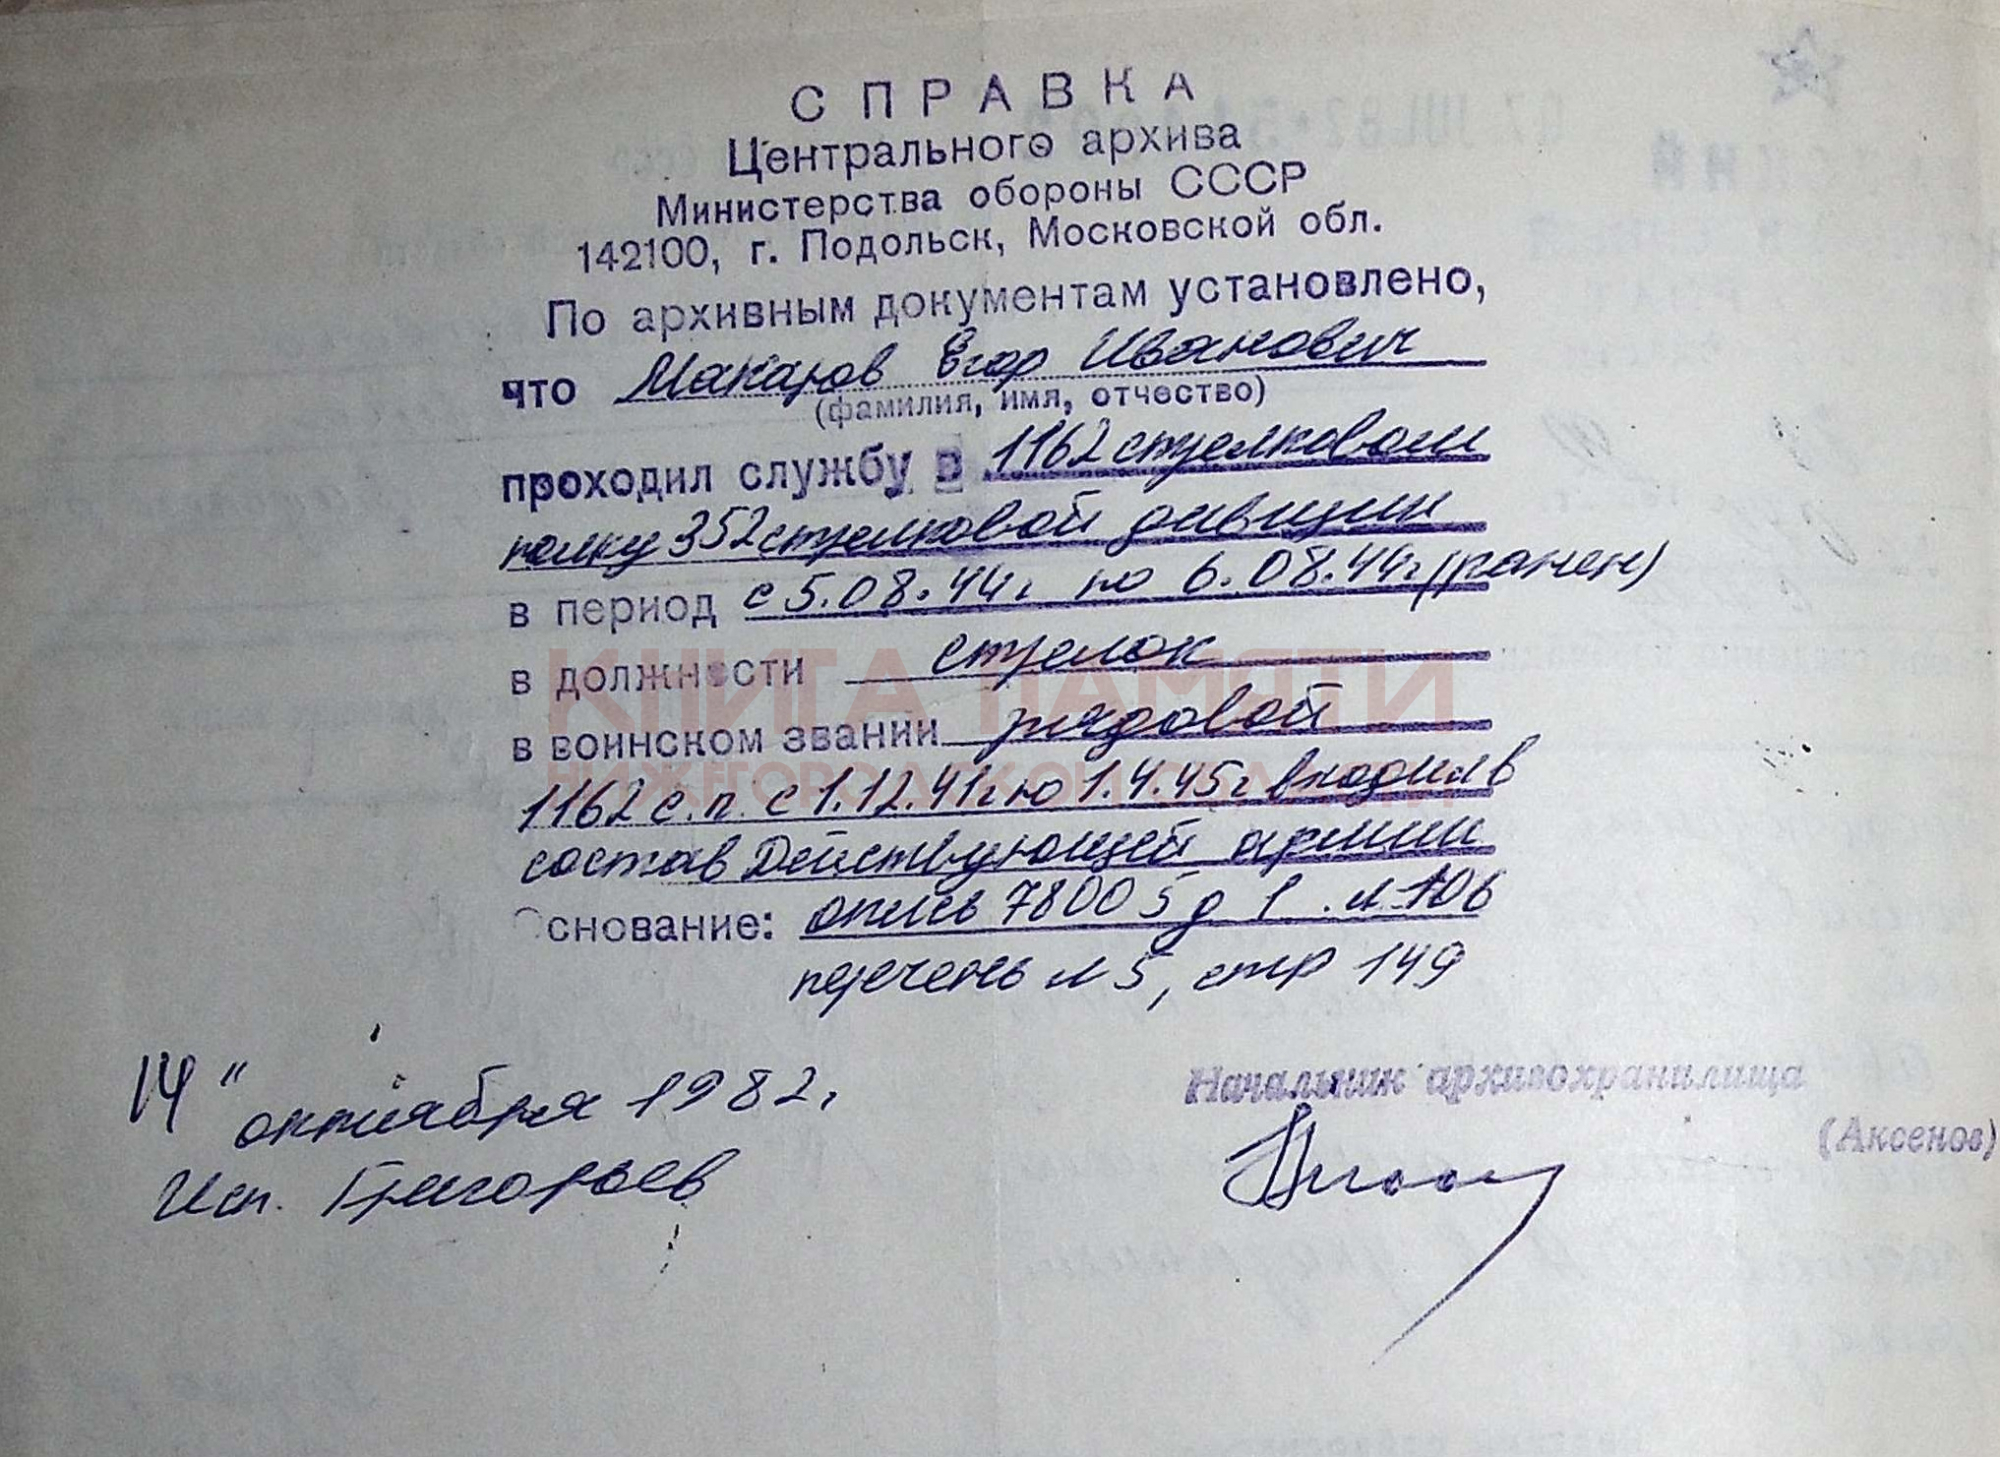 СПРАВКА
Центрального архива
Министерства обороны СССР
142100, г. Подольск, Московской обл.
По архивным документам установлено,
что Макаров Егор Иванович
(фамилия, имя, отчество)
проходил службу в 1162 стрелковом
полку 352 стрелковой дивизии
в период с 5.08.44г по 6.08.44г (ранен)
в должности стрелок
КНИГА ПАМЯТИ
в воинском звании рядовой
1162 с.п. с 1.12.41г по 1.4.45г входил в
состав Действующей армии
Основание: опись 78005 д 1. л 106
перечень № 5, стр 149
14" октября 1982г.
Исп. Григорьев
Начальник архивохранилища
(Аксенов)